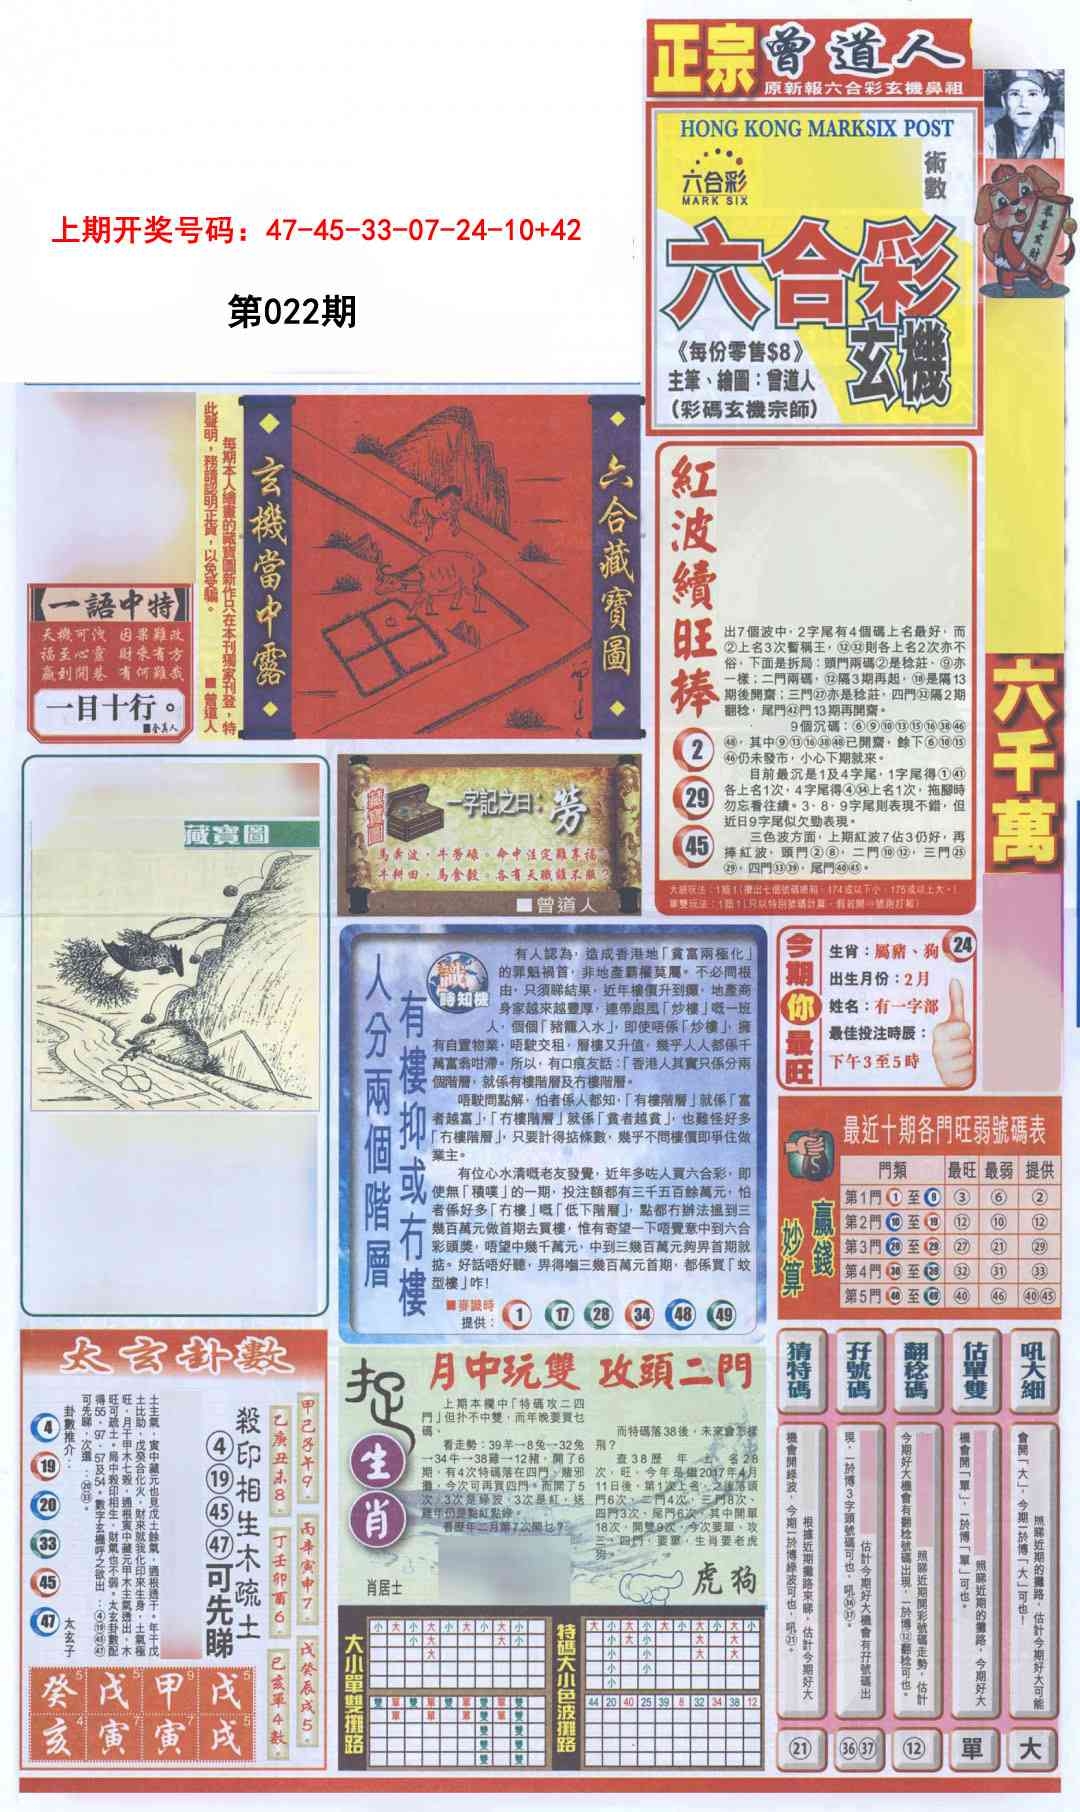 正宗曾道人
原新報六合彩玄機鼻祖
HONG KONG MARKSIX POST
六合彩
MARK SIX
術數
六合彩
玄機
《每份零售$8》
主筆、繪圖：曾道人
（彩碼玄機宗師）
恭喜发财
六千萬
上期开奖号码：47-45-33-07-24-10+42
第022期
一語中特
天機可洩 因果難改
福至心靈 財來有方
贏到開巷 有何難哉
一目十行。
每期本人繪畫的藏寶圖新作只在本刊獨家刊登，特
此聲明，務請認明正貨，以免受騙。 ■曾道人
玄機當中露
六合藏寶圖
紅波續旺捧
2
29
45
出7個波中，2字尾有4個碼上名最好，而
②上名3次暫稱王，⑫㉜則各上名2次亦不
俗，下面是拆局：頭門兩碼②是稔莊、⑨亦
一樣；二門兩碼，⑫隔3期再起，⑱是隔13
期後開齋；三門㉗亦是稔莊，四門㉜隔2期
翻稔，尾門㊷門13期再開齋。
9個沉碼：⑥⑨⑩⑬⑮⑯㊳㊻
㊽，其中⑨⑬⑯㊳㊽已開齋，餘下⑥⑩⑮
㊻仍未發市，小心下期就來。
目前最沉是1及4字尾，1字尾得①㊶
各上名1次，4字尾得④㉞上名1次，拖腳時
勿忘看往績。3、8、9字尾則表現不錯，但
近日9字尾似欠勁表現。
三色波方面，上期紅波7佔3仍好，再
捧紅波，頭門②⑧，二門⑩⑫，三門㉕
㉙，四門㉝㊴，尾門㊵㊺。
藏寶圖
一字記之曰：勞
馬奔波，牛勞碌。命中注定難享福。
牛耕田，馬食穀。各有天職誰不服？
■曾道人
藏寶圖
人分兩個階層
有樓抑或冇樓
時知機
有人認為，造成香港地「貧富兩極化」
的罪魁禍首，非地產霸權莫屬。不必問根
由，只須睇結果，近年樓價升到癲，地產商
身家越來越豐厚，連帶跟風「炒樓」嘅一班
人，個個「豬籠入水」，即使唔係「炒樓」，擁
有自置物業，唔駛交租，層樓又升值，幾乎人人都係千
萬富翁咁滯。所以，有口痕友話：「香港人其實只係分兩
個階層，就係有樓階層及冇樓階層。
唔駛問點解，怕者係人都知，「有樓階層」就係「富
者越富」，「冇樓階層」就係「貧者越貧」，也難怪好多
「冇樓階層」，只要計得掂條數，幾乎不問樓價即爭住做
業主。
有位心水清嘅老友發覺，近年多咗人買六合彩，即
使無「積噗」的一期，投注額都有三千五百餘萬元，怕
者係好多「冇樓」嘅「低下階層」，點都冇辦法搵到三
幾百萬元做首期去買樓，惟有寄望一下唔覺意中到六合
彩頭獎，唔望中幾千萬元，中到三幾百萬元夠畀首期就
掂。好話唔好聽，畀得嗰三幾百萬元首期，都係買「蚊
型樓」咋！
■麥識時
提供： 1 17 28 34 48 49
今期你最旺
24
生肖：屬豬、狗
出生月份：2月
姓名：有一字部
最佳投注時辰：
下午3至5時
最近十期各門旺弱號碼表
贏錢妙算
門類 最旺 最弱 提供
第1門①至⑨ ③ ⑥ ②
第2門⑩至⑲ ⑫ ⑩ ⑫
第3門⑳至㉙ ㉗ ㉑ ㉙
第4門㉚至㊴ ㉜ ㉛ ㉝
第5門㊵至㊾ ㊵ ㊻ ㊵㊺
太玄卦數
殺印相生木疏土
④⑲㊺㊼可先睇
卦數推介：
4
19
20
33
45
47
太玄子
甲己子午9，
乙庚丑未8，
丙辛寅申7，
丁壬卯酉6，
戊癸辰戌5，
巳亥單4數。
癸 戊 甲 戊
亥 寅 寅 戌
捉生肖
月中玩雙 攻頭二門
上期本欄中「特碼攻二四
門」但扑不中雙，而年晚要買乜
碼。
看走勢：39羊→8兔→32兔
→34牛→38雞→12豬，開了6
期，有4次特碼落在四門，賭邪
攤，今次可再買四門。而開了5
次，3次是綠波，3次是紅，送
雞年仍是點紅點綠。
看歷年二月第7次開乜？
而特碼落38後，未來會怎樣
飛？
查38歷年上名28
次，旺，今年是繼2017年4月
11日後，第1次上名，之後落頭
門6次，二門4次，三門8次，
四門3次，尾門6次，其中開單
18次，開雙9次，今次要單，攻
三、四門，要單，生肖要老虎
狗。
肖居士
虎狗
大小單雙攤路
特碼大小色波攤路
44 20 40 25 39 8 32 34 38 12
猜特碼
根據近期攤路來睇，估計今期好大
機會開綠波，今期一於博綠波可也，吼㉑。
㉑
孖號碼
估計今期好大機會有孖號碼出
現，一於博3字頭號碼可也，吼㊱㊲。
㊱㊲
翻稔碼
照睇近期開彩號碼走勢，估計
今期好大機會有翻稔號碼出現，一於博⑫翻稔可也。
⑫
估單雙
照睇近期的攤路，今期好大
機會開「單」，一於博「單」可也。
單
吼大細
照睇近期的攤路，估計今期好大可能
會開「大」，今期一於博「大」可也！
大